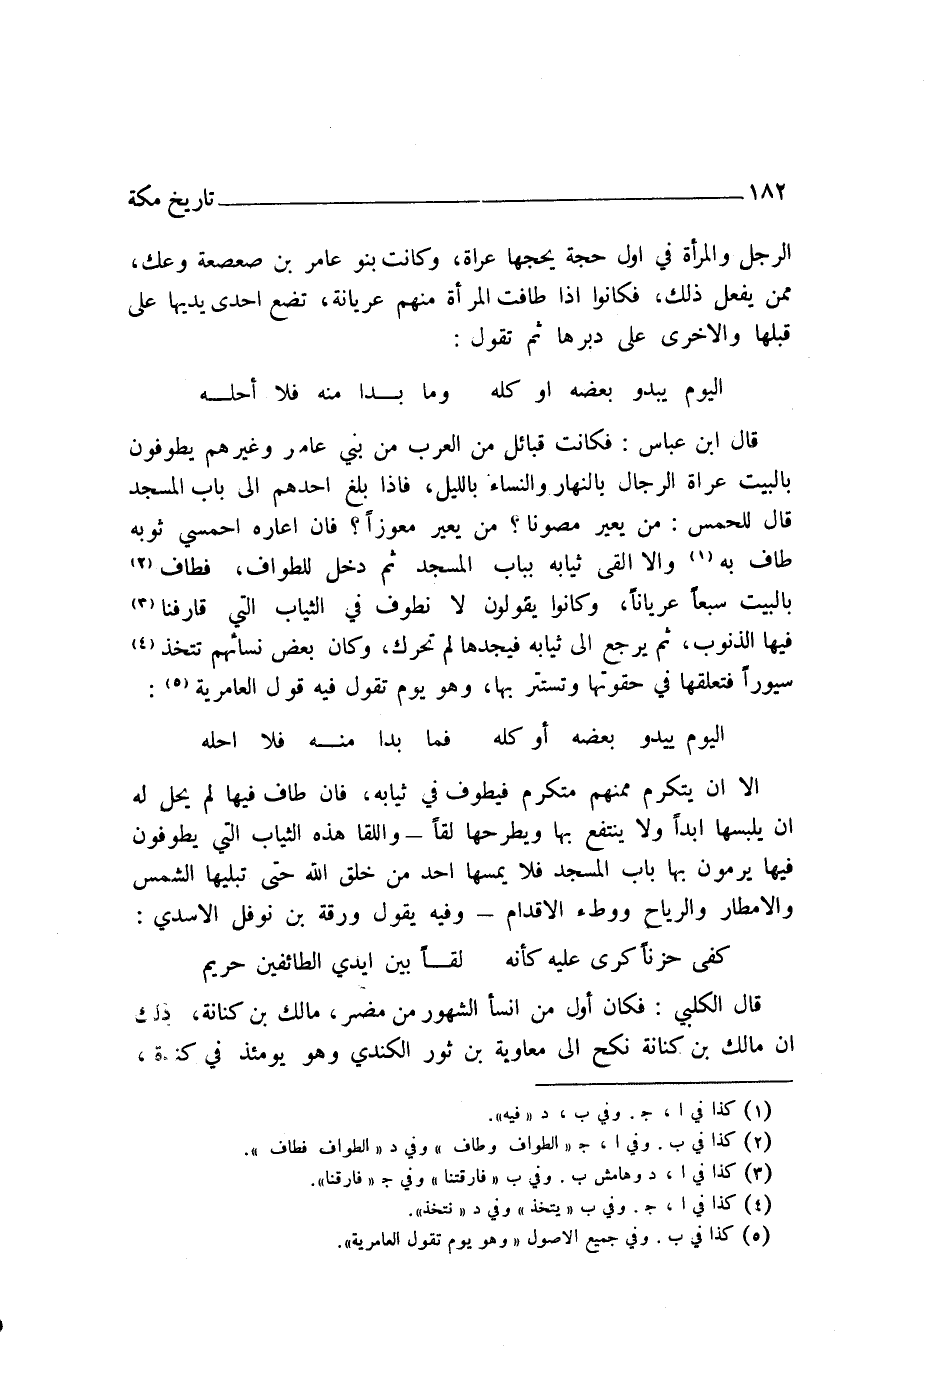 ١٨٢ تاريخ مكة
الرجل والمرأة في اول حجة يحجها عراة، وكانت بنو عامر بن صعصعة وعك،
ممن يفعل ذلك، فكانوا اذا طافت المرأة منهم عريانة، تضع احدى يديها على
قبلها والاخرى على دبرها ثم تقول :
اليوم يبدو بعضه او كله وما بـــدا منه فلا أحلـــه
قال ابن عباس : فكانت قبائل من العرب من بني عامر وغيرهم يطوفون
بالبيت عراة الرجال بالنهار والنساء بالليل، فاذا بلغ احدهم الى باب المسجد
قال للحمس : من يعير مصونا؟ من يعير معوزاً؟ فان اعاره احمسي ثوبه
طاف به (١) والا القى ثيابه بباب المسجد ثم دخل للطواف، فطاف (٢)
بالبيت سبعاً عرياناً، وكانوا يقولون لا نطوف في الثياب التي قارفنا (٣)
فيها الذنوب، ثم يرجع الى ثيابه فيجدها لم تحرك، وكان بعض نسائهم تتخذ (٤)
سيوراً فتعلقها في حقوتها وتستتر بها، وهو يوم تقول فيه قول العامرية (٥) :
اليوم يبدو بعضه أو كله فما بدا منـــه فلا احله
الا ان يتكرم ممنهم متكرم فيطوف في ثيابه، فان طاف فيها لم يحل له
ان يلبسها ابداً ولا ينتفع بها ويطرحها لقاً – واللقا هذه الثياب التي يطوفون
فيها يرمون بها باب المسجد فلا يمسها احد من خلق الله حتى تبليها الشمس
والامطار والرياح ووطء الاقدام – وفيه يقول ورقة بن نوفل الاسدي :
كفى حزناً كرى عليه كأنه لقـــاً بين ايدي الطائفين حريم
قال الكلبي : فكان أول من انسأ الشهور من مضر، مالك بن كنانة، ذلك
ان مالك بن كنانة نكح الى معاوية بن ثور الكندي وهو يومئذ في كندة ،
(١) كذا في ا ، ج . وفي ب ، د « فيه».
(٢) كذا في ب . وفي ا ، ج « الطواف وطاف » وفي د « الطواف فطاف ».
(٣) كذا في ا ، د وهامش ب . وفي ب « فارقتنا » وفي ج « فارقنا».
(٤) كذا في ا ، ج . وفي ب « يتخذ » وفي د « نتخذ».
(٥) كذا في ب . وفي جميع الاصول « وهو يوم تقول العامرية».